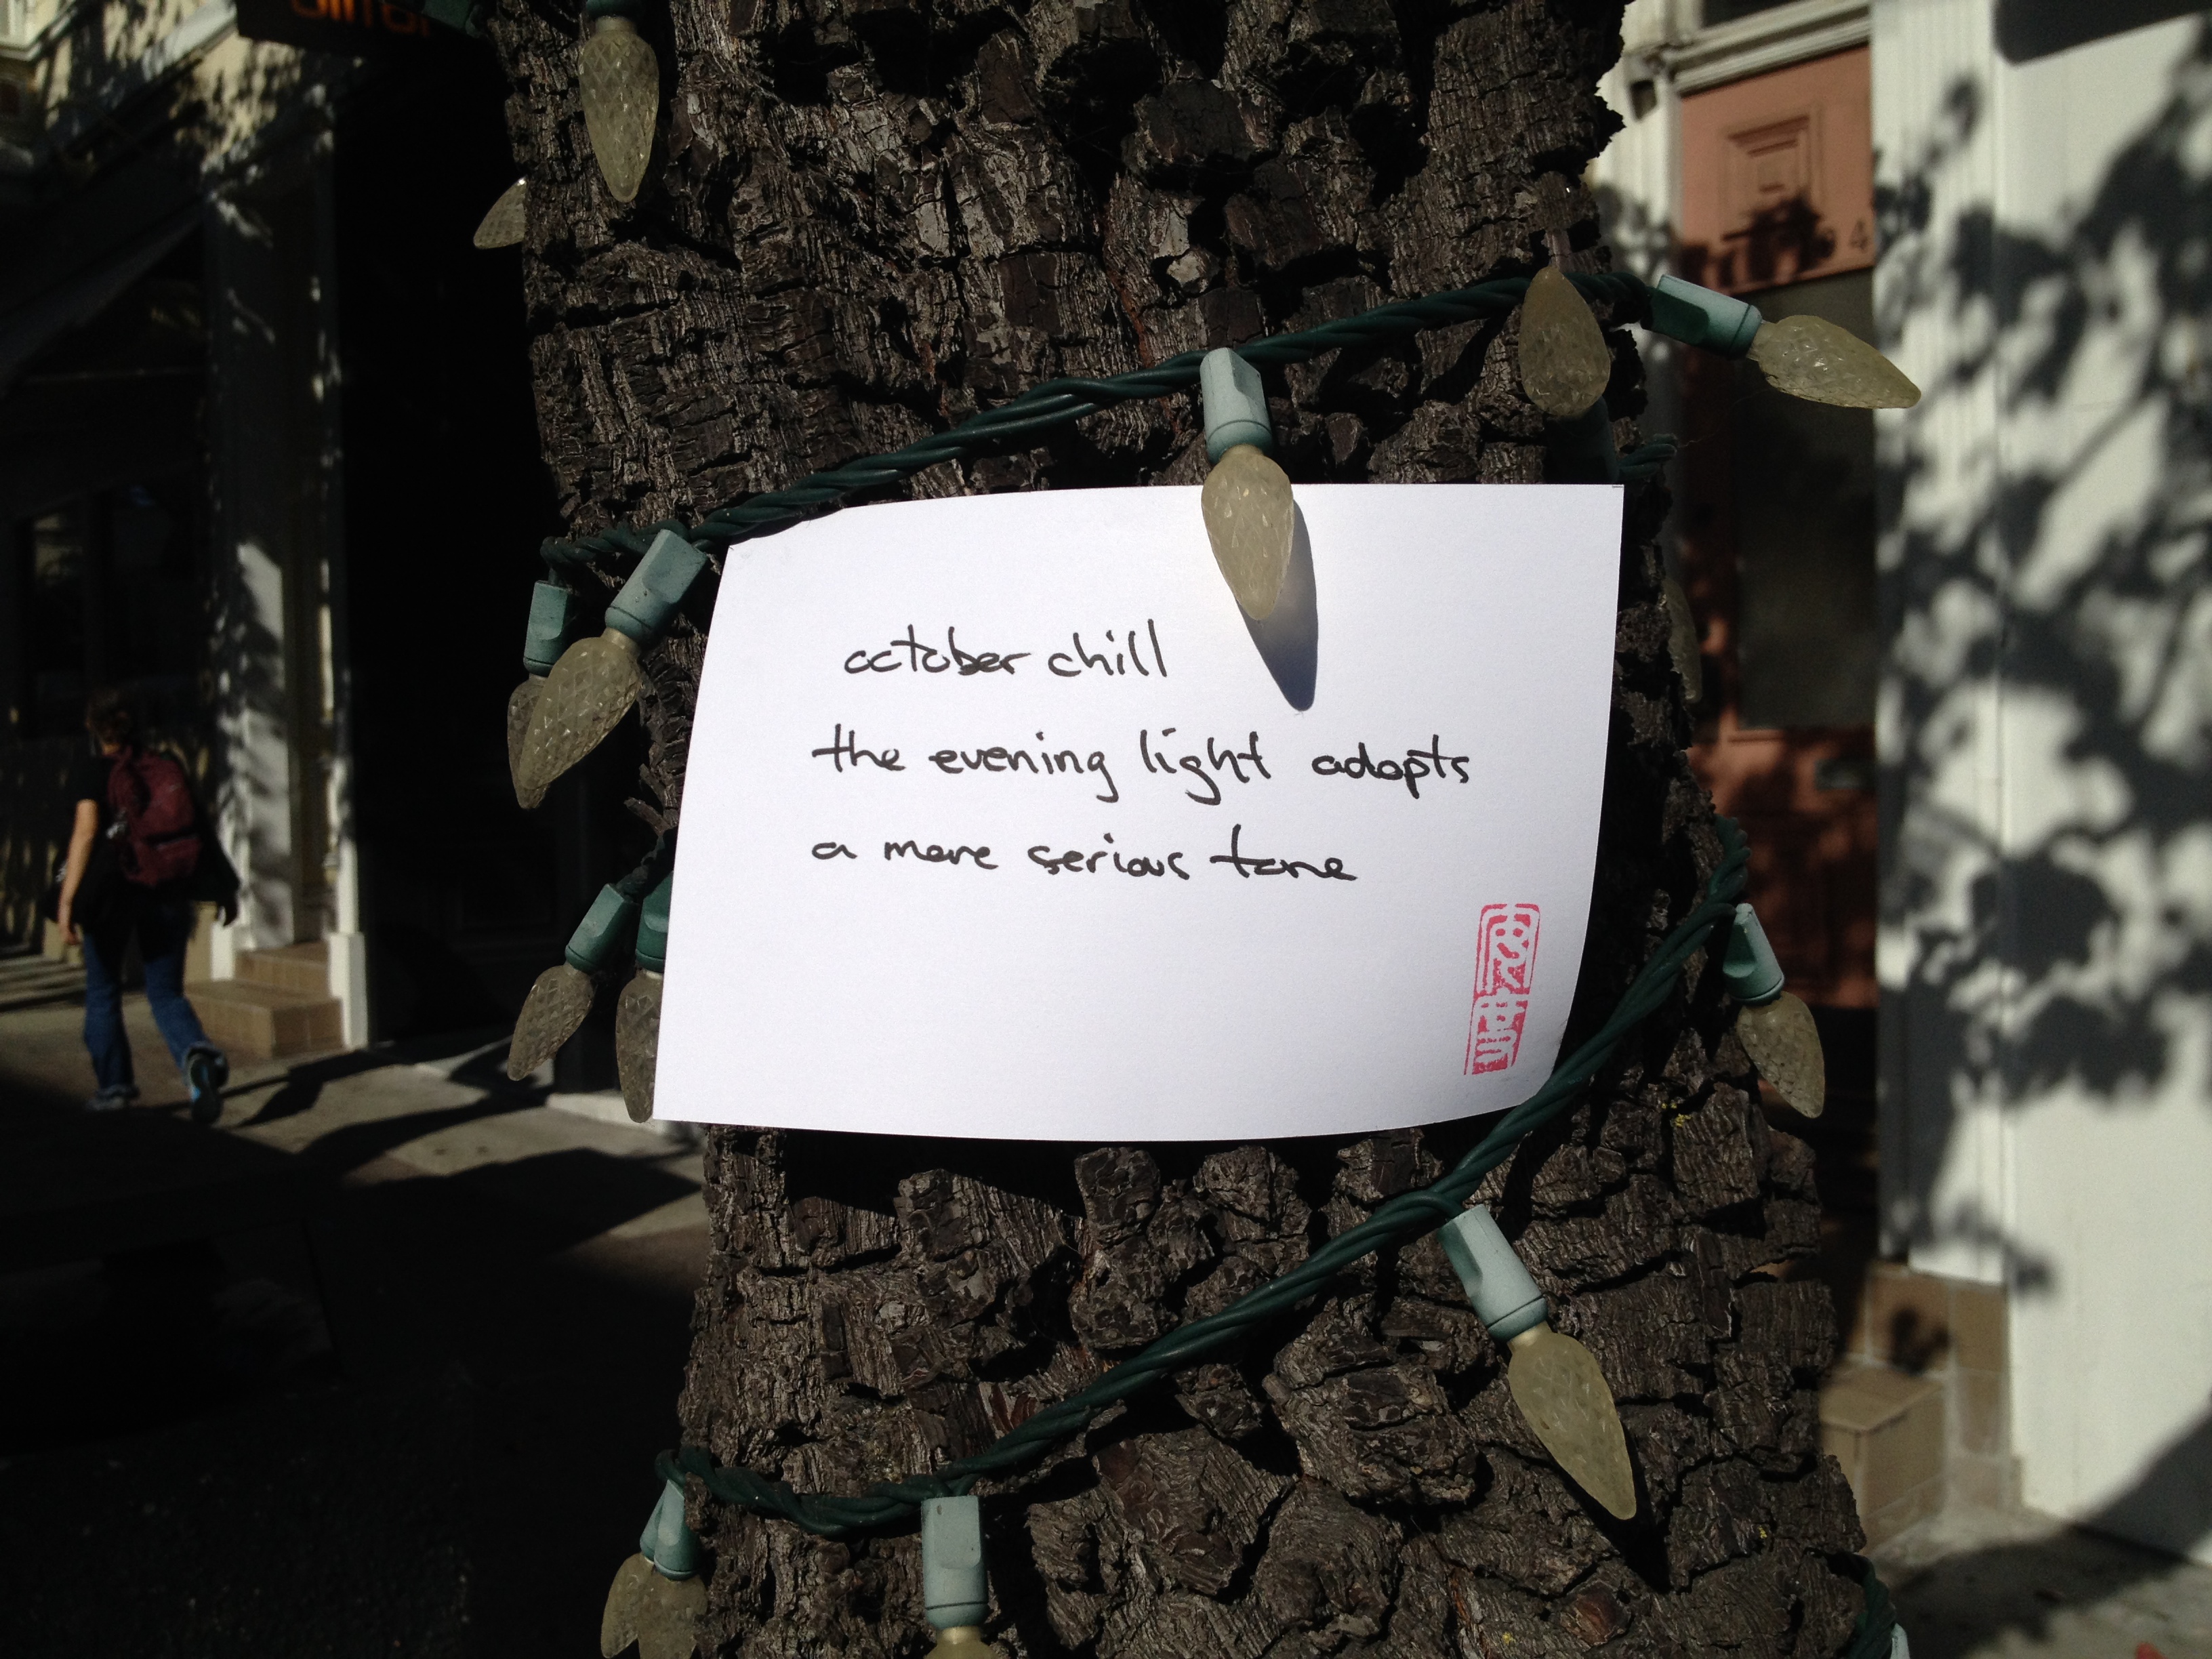 october chill
the evening light adopts
a more serious tone